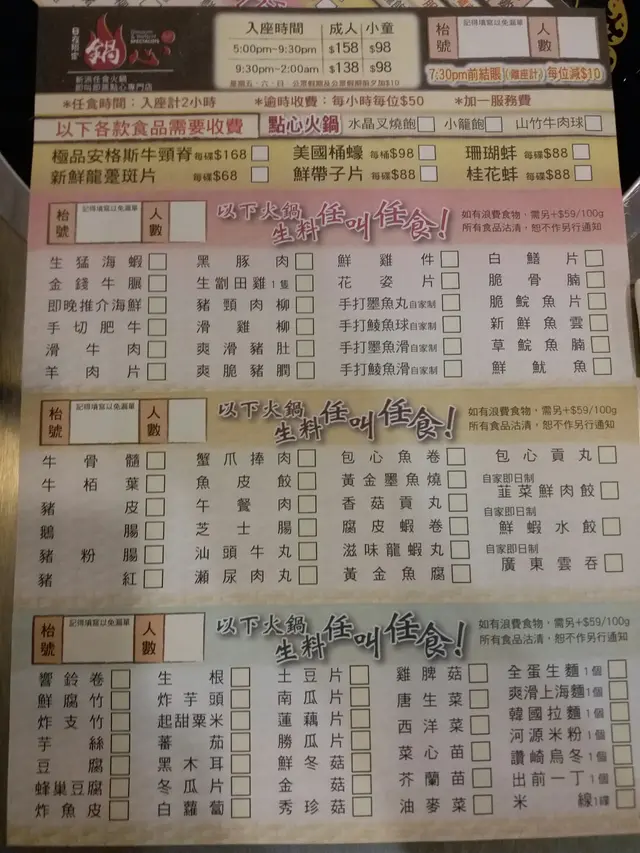 鍋心
新派任食火鍋
即叫即蒸點心專門店
入座時間 成人 小童
5:00pm~9:30pm $158 $98
9:30pm~2:00am $138 $98
星期五、六、日、公眾假期及公眾假期前夕加$10
枱號 記得填寫以免漏單 人數
7:30pm前結賬(離座計)每位減$10
*任食時間：入座計2小時 *逾時收費：每小時每位$50 *加一服務費
以下各款食品需要收費 點心火鍋 水晶叉燒飽 小籠飽 山竹牛肉球
極品安格斯牛頸脊 每碟$168 美國桶蠔 每桶$98 珊瑚蚌 每碟$88
新鮮龍躉斑片 每碟$68 鮮帶子片 每碟$88 桂花蚌 每碟$88
枱號 記得填寫以免漏單 人數
以下火鍋生料任叫任食!
如有浪費食物，需另+$59/100g
所有食品沽清，恕不作另行通知
生猛海蝦 黑豚肉 鮮雞件 白鱔片
金錢牛𦟌 生劏田雞 1隻 花姿片 脆骨腩
即晚推介海鮮 豬頸肉柳 手打墨魚丸 自家制 脆鯇魚片
手切肥牛 滑雞柳 手打鯪魚球 自家制 新鮮魚雲
滑牛肉 爽滑豬肚 手打墨魚滑 自家制 草鯇魚腩
羊肉片 爽脆豬膶 手打鯪魚滑 自家制 鮮魷魚
枱號 記得填寫以免漏單 人數
以下火鍋生料任叫任食!
如有浪費食物，需另+$59/100g
所有食品沽清，恕不作另行通知
牛骨髓 蟹爪捧肉 包心魚卷 包心貢丸
牛栢葉 魚皮餃 黃金墨魚燒 自家即日制 韮菜鮮肉餃
豬皮 午餐肉 香菇貢丸 自家即日制
鵝腸 芝士腸 腐皮蝦卷 鮮蝦水餃
豬粉腸 汕頭牛丸 滋味龍蝦丸 自家即日制
豬紅 瀨尿肉丸 黃金魚腐 廣東雲吞
枱號 記得填寫以免漏單 人數
以下火鍋生料任叫任食!
如有浪費食物，需另+$59/100g
所有食品沽清，恕不作另行通知
響鈴卷 生根 土豆片 雞脾菇 全蛋生麵 1個
鮮腐竹 炸芋頭 南瓜片 唐生菜 爽滑上海麵 1個
炸支竹 起甜粟米 蓮藕片 西洋菜 韓國拉麵 1個
芋絲 蕃茄 勝瓜片 菜心苗 河源米粉 1個
豆腐 黑木耳 鮮冬菇 芥蘭苗 讚崎烏冬 1個
蜂巢豆腐 冬瓜片 金菇 油麥菜 出前一丁 1個
炸魚皮 白蘿蔔 秀珍菇 米線 1碟